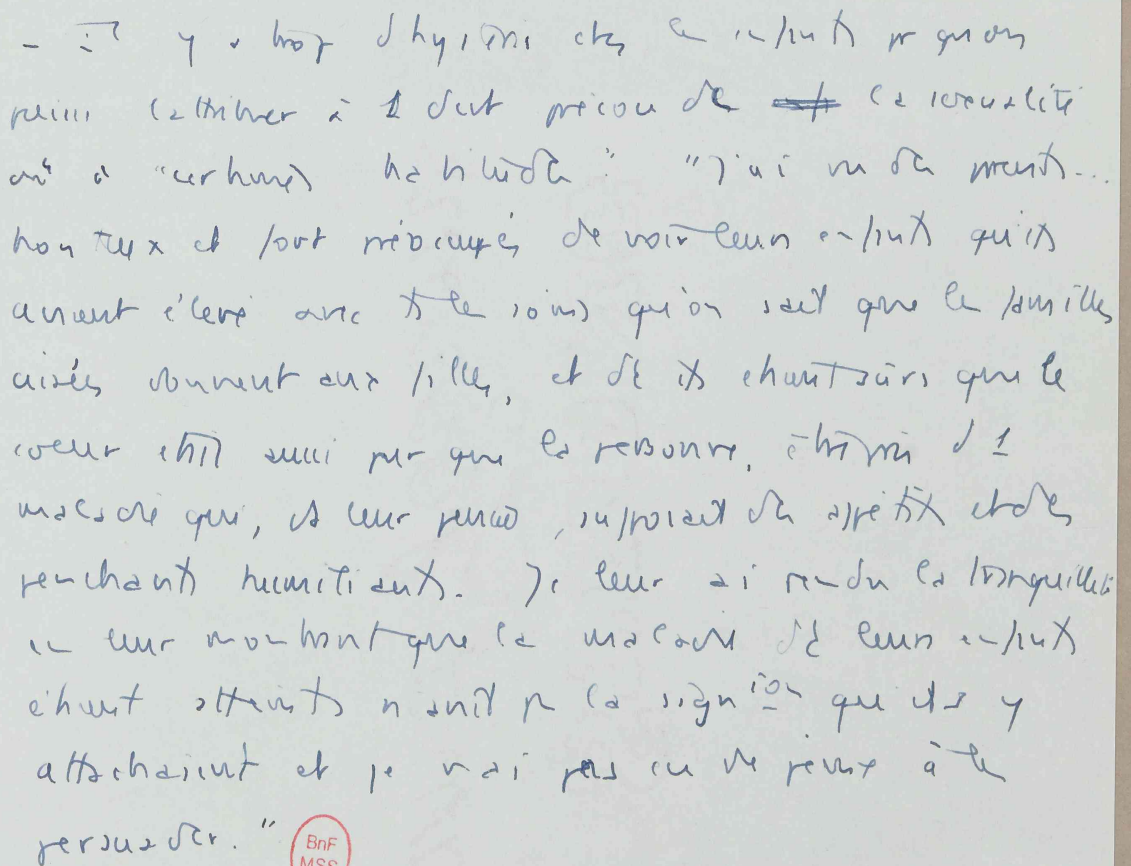 - il y a trop d'hystéries chez les enfants pr qu'on
puisse l'attribuer à 1 dvt précoce de la sexualité
ou à "certaines habitudes" : "J'ai vu des parents...
honteux et fort préoccupés de voir leurs enfants qu'ils
avaient élevé avec ts les soins qu'on sait que les familles
aisées donnent aux filles, et dt ils étaient sûrs que le
cœur était aussi pur que la personne, être pris d'1
maladie qui, ds leur pensée, supposait des appétits et des
penchants humiliants. Je leur ai rendu la tranquillité
en leur montrant que la maladie dt leurs enfants
étaient atteints n'avait pas la signion qu'ils y
attachaient et je n'ai pas eu de peine à les
persuader."
BnF
MSS